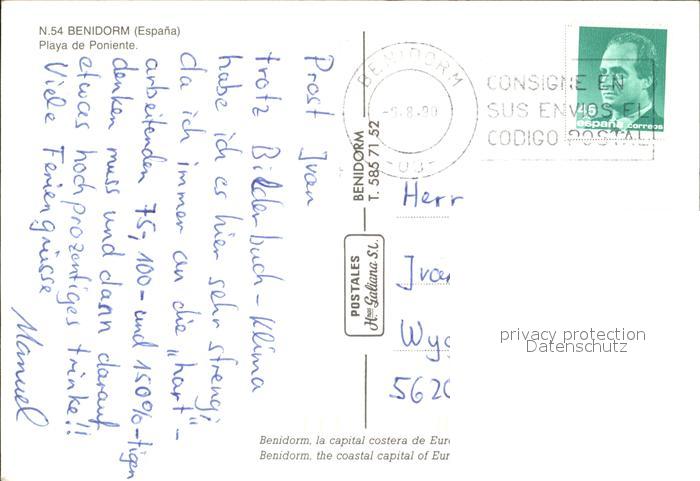 N.54 BENIDORM (España)
Playa de Poniente.
Prost Ivan
trotz Bilderbuch-Klima
habe ich es hier sehr streng,
da ich immer an die "hart"-
arbeitenden 75-, 100- und 150%-tigen
denken muss und dann darauf
etwas hochprozentiges trinke!!
Viele Feriengrüsse
Manuel
BENIDORM
-8.90
03
CONSIGNE EN
SUS ENVIOS EL
CODIGO POSTAL
45
españa correos
BENIDORM
T. 585 71 52
POSTALES
Hnos Galiana S.L.
Herr
Ivan
Wyg
562
privacy protection
Datenschutz
Benidorm, la capital costera de Eur
Benidorm, the coastal capital of Eur